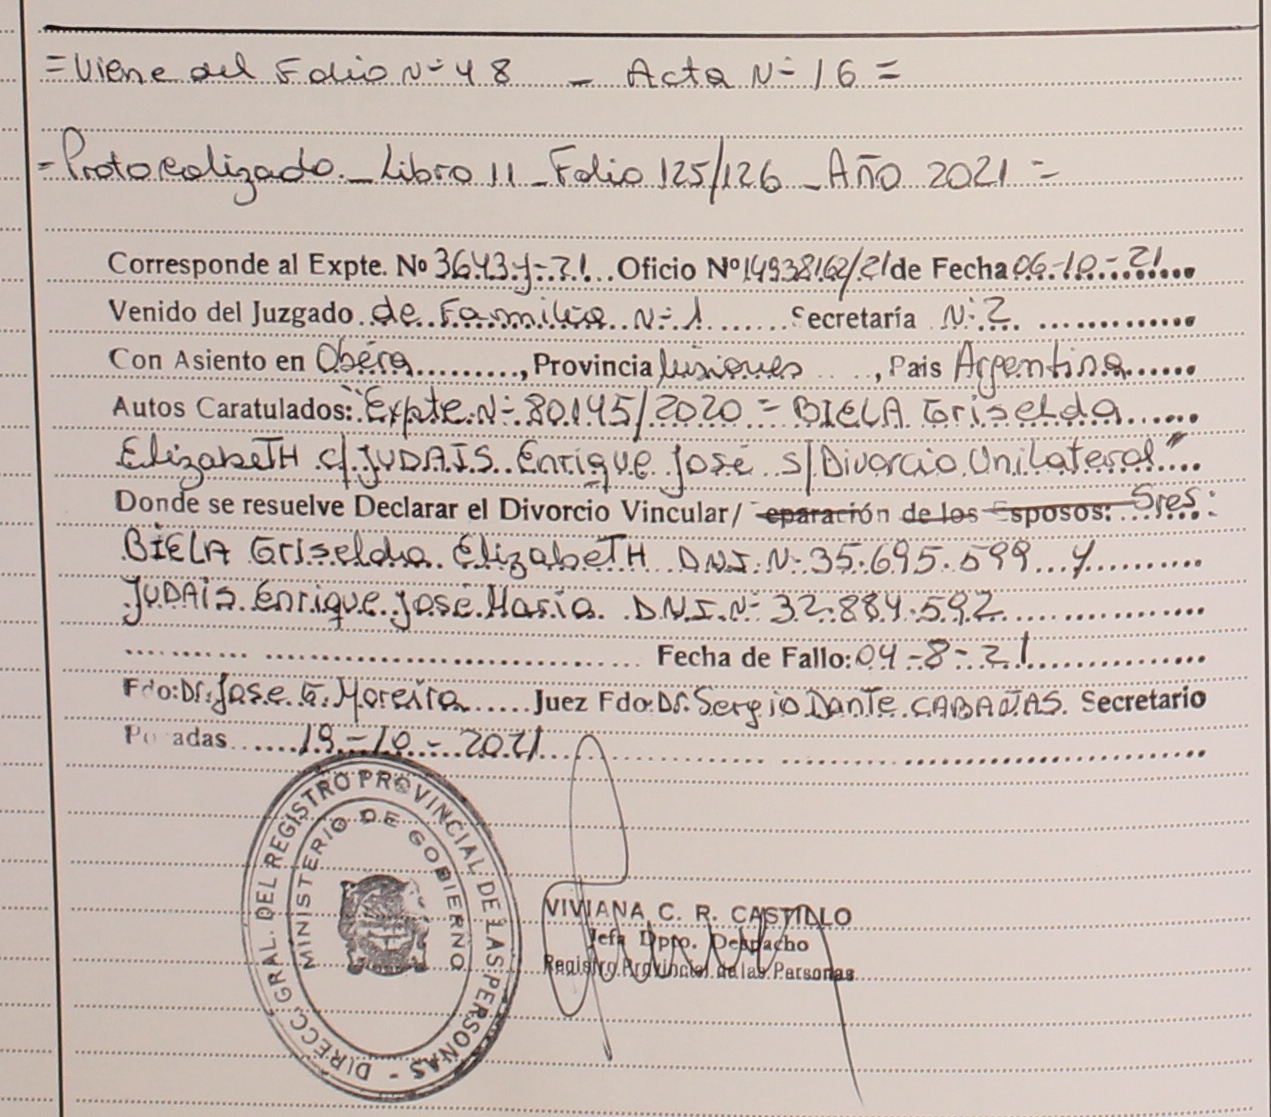 = Viene del Folio Nº 48 - Acta Nº 16 =
= Protocolizado - Libro 11 - Folio 125/126 - Año 2021 =
Corresponde al Expte. Nº 3643-J-21 Oficio Nº 14938162/21 de Fecha 06-10-21
Venido del Juzgado de Familia Nº 1 Secretaría Nº 2
Con Asiento en Oberá, Provincia Misiones, Pais Argentina
Autos Caratulados: "Expte. Nº 80145/2020 = BIELA Griselda
ElizabeTH c/ JUDAIS Enrique José s/ Divorcio Unilateral"
Donde se resuelve Declarar el Divorcio Vincular/ eparación de los Esposos: Sres:
BIELA Griselda ElizabeTH DNI. Nº 35.695.599 y
JUDAIS Enrique José María D.N.I. Nº 32.884.592
Fecha de Fallo: 04-8-21
Fdo: Dr. Jose G. Moreira Juez Fdo: Dr. Sergio Dante CABAÑAS. Secretario
Posadas 19-10-2021
DIRECC. GRAL. DEL REGISTRO PROVINCIAL DE LAS PERSONAS -
MINISTERIO DE GOBIERNO
VIVIANA C. R. CASTILLO
Jefa Dpto. Despacho
Registro Provincial de las Personas